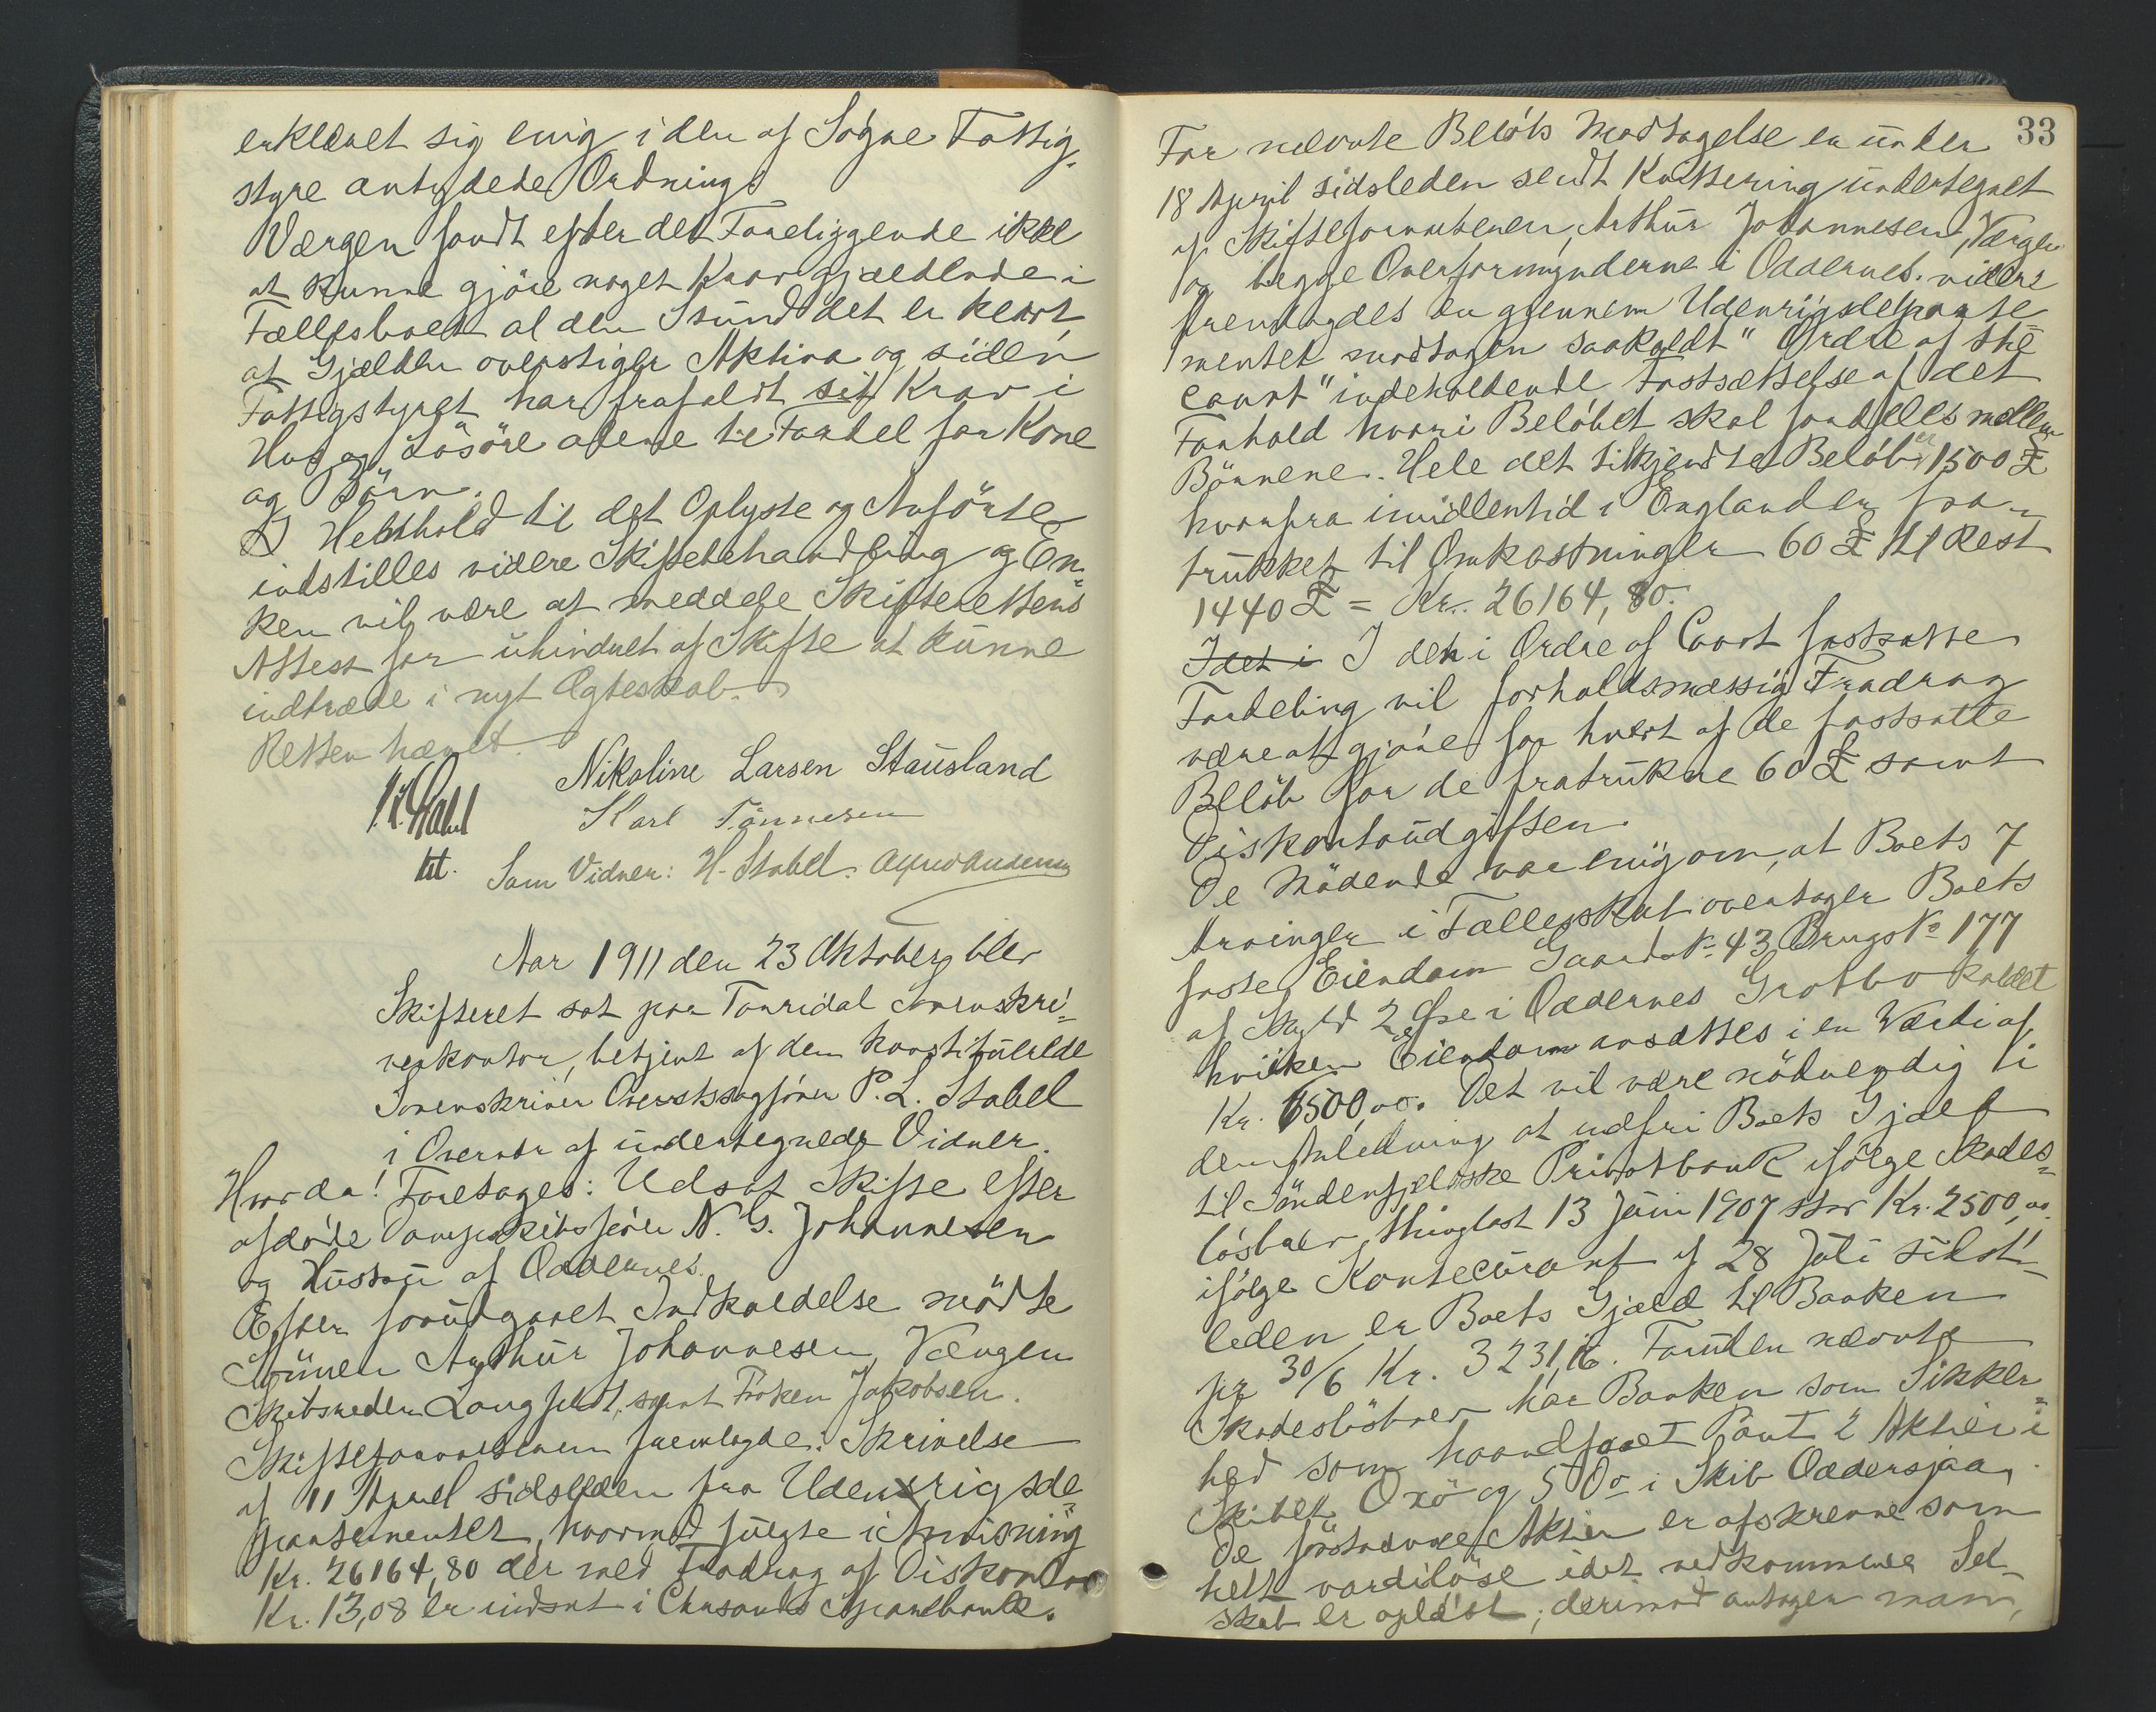 erklæret sig enig i den af Søgne Fattig-
styre antydede Ordning.
Værgen fandt efter det Foreliggende ikke
at kunne gjöre noget Krav gjældende i
Fællesboet al den Stund det er klart,
at Gjælden overstiger Aktiva og siden
Fattigstyret har frafaldt sit Krav i
Hus og Løsöre alene til Fordel for Kone
og Börn.
I Henhold til det Oplyste og Anförte
indstilles videre Skiftebehandling og En-
ken vil være at meddele Skifterettens
Attest for uhindret af Skifte at kunne
indtræde i nyt Ægteskab.
Retten hævet.
Nikoline Larsen Stausland
Karl Tönnesen
kst. Som Vidner: H. Stabel. Alfred Andersen
Aar 1911 den 23 Oktober blev
Skifteret sat paa Torridal Sorenskri-
verkontor, betjent af den konstituerede
Sorenskriver Overretssagfører P. L. Stabel
i Overvær af undertegnede Vidner.
Hvorda! Foretages: Udsat Skifte efter
afdøde Dampskibsfører N. G. Johannesen
og Hustru af Oddernes.
Efter forudgaaet Indkaldelse mödte
Sönnen Arthur Johannesen, Værgen
Skibsreder Langfeldt, samt Frøken Jakobsen.
Skifteforvalteren fremlagde: Skrivelse
af 11 April sidsleden fra Udenrigsde-
partementet, hvormed fulgte i Anvisning
Kr. 26164,80 der med Fradrag af Diskonto
Kr. 13,08 er indsat i Chrsands Sparebank.
33
For nævnte Beløbs Modtagelse er under
18 April sidsleden sendt Kvittering undertegnet
af Skifteforvalteren, Arthur Johannesen, Værgen
og begge Overformynderne i Oddernes. videre
fremlagdes en gjennem Udenrigsdeparte
mentet modtagen saakaldt "Ordre of the
Court" indeholdende Fastsættelse af det
Forhold hvori Beløbet skal fordeles mellem
Börnene. Hele det tilkjendte Beløb er 1500 £
hvorfra imidlertid i England er fra-
trukket til Omkostninger 60 £ til Rest
1440 £ = Kr. 26164,80.
Idet i I den i Ordre of Court fastsatte
Fordeling vil forholdsmæssig Fradrag
være at gjøre for hvert af de fastsatte
Beløb for de fratrukne 60 £ samt
Diskontoudgiften.
De Mödende var enig om, at Boets 7
Arvinger i Fællesskab overtager Boets
faste Eiendom Gaards No 43 Brugs No 177
af Skyld 2 Øre i Oddernes Grotbo kaldet
hvilken Eiendom ansættes i en Værdi af
Kr. 6500,00. Det vil være nödvendig i
den Anledning at udfri Boets Gjæld
til Söndenfjeldske Privatbank ifölge Skades-
løsbrev, thinglæst 13 Juni 1907 stor Kr. 2500,00.
ifölge Kontocurant af 28 Juli sidst-
leden er Boets Gjæld til Banken
pr 30/6 Kr. 3231,16. Foruden nævnte
Skadesløsbrev har Banken som Sikker-
hed som haandfaaet Pant 2 Aktier i
Skibet Oxö og 5 Do i Skib Oddersjaa.
De förstnævnte Aktier er afskrevne som
helt værdiløse idet vedkommende Sel-
skab er opløst; derimod antager man,